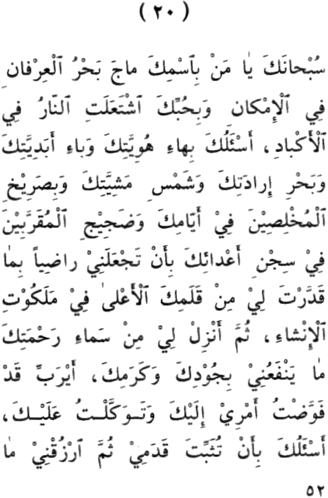 ( ٢٠ )
سُبْحانَكَ يٰا مَنْ بِٱسْمِكَ ماجَ بَحْرُ ٱلْعِرْفانِ
فِي ٱلْإِمْكانِ وَبِحُبِّكَ ٱشْتَعَلَتِ ٱلنّارُ فِي
ٱلْأَكْبادِ، أَسْئَلُكَ بِهاءِ هُوِيَّتِكَ وَباءِ أَبَدِيَّتِكَ
وَبَحْرِ إِرادَتِكَ وَشَمْسِ مَشِيَّتِكَ وَبِصَرِيْخِ
ٱلْمُخْلِصِيْنَ فِيْ أَيّامِكَ وَضَجِيْجِ ٱلْمُقَرَّبِيْنَ
فِي سِجْنِ أَعْدائِكَ بِأَنْ تَجْعَلَنِيْ راضِياً بِمٰا
قَدَّرْتَ لِيْ مِنْ قَلَمِكَ ٱلْأَعْلىٰ فِيْ مَلَكُوْتِ
ٱلْإِنْشاءِ، ثُمَّ أَنْزِلْ لِيْ مِنْ سَماءِ رَحْمَتِكَ
مٰا يَنْفَعُنِيْ بِجُوْدِكَ وَكَرَمِكَ، أَيْرَبِّ قَدْ
فَوَّضْتُ أَمْرِيْ إِلَيْكَ وَتَـوَكَّلْـتُ عَلَيْـكَ،
أَسْئَلُكَ بِأَنْ تُثَبِّتَ قَدَمِيْ ثُمَّ ٱرْزُقْنِيْ مٰا
٥٢